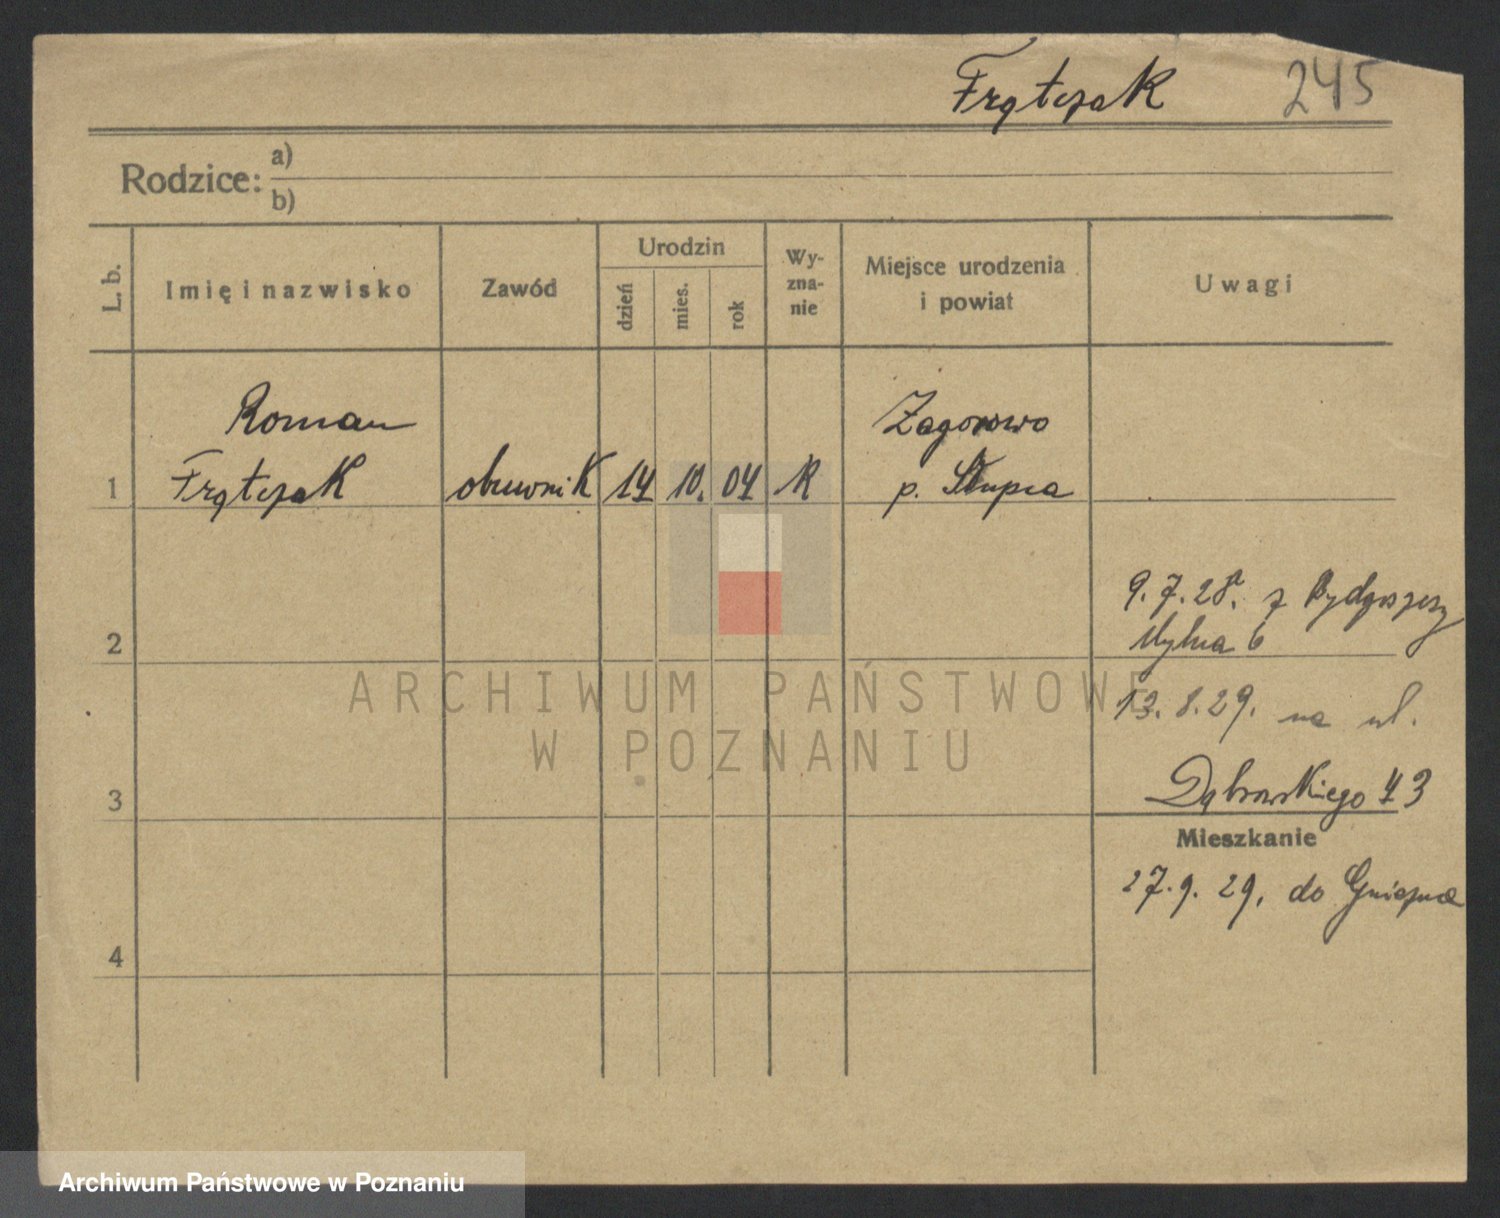 Frątczak 245
Rodzice: a)
b)
L. b.
Imię i nazwisko
Zawód
Urodzin
dzień
mies.
rok
Wy-
zna-
nie
Miejsce urodzenia
i powiat
Uwagi
Roman
Zagorowo
1 Frątczak obuwnik 14 10. 04 R p. Słupca
9. 7. 28. z Bydgoszczy
2 Mylna 6
13. 8. 29. na ul.
3 Dąbrowskiego 43
Mieszkanie
27. 9. 29. do Gniezna
4
ARCHIWUM PAŃSTWOWE
W POZNANIU
Archiwum Państwowe w Poznaniu